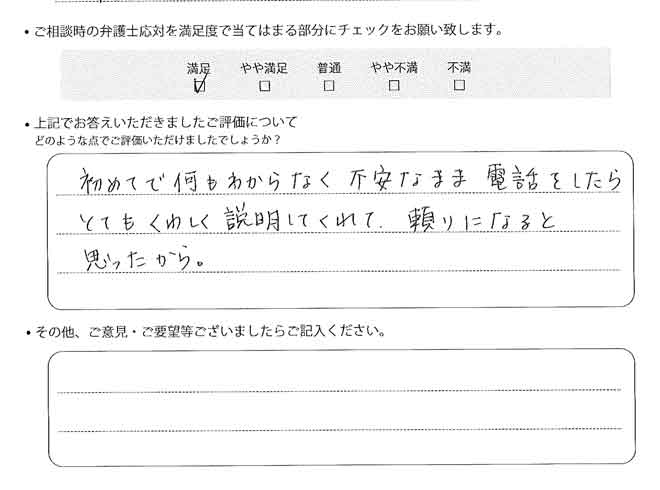 ・ご相談時の弁護士応対を満足度で当てはまる部分にチェックをお願い致します。
満足 やや満足 普通 やや不満 不満
☑ □ □ □ □
・上記でお答えいただきましたご評価について
どのような点でご評価いただけましたでしょうか？
初めてで何もわからなく 不安なまま 電話をしたら
とてもくわしく説明してくれて、頼りになると
思ったから。
・その他、ご意見・ご要望等ございましたらご記入ください。